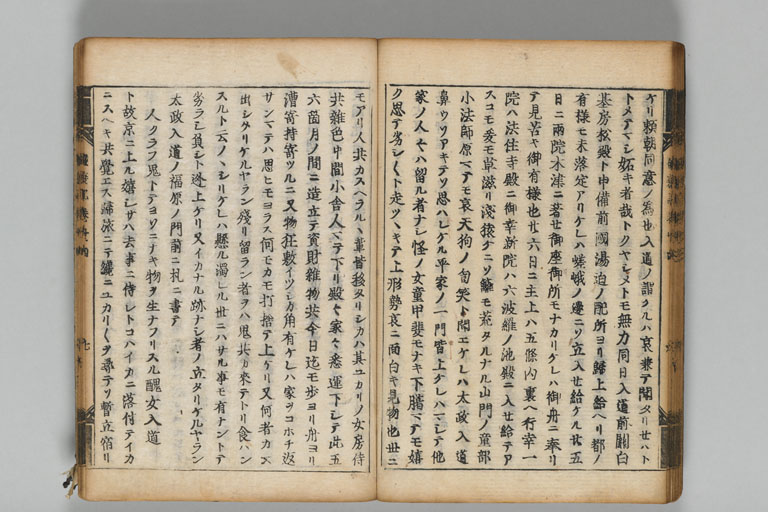 ケリ頼朝同意ノ為也入道ノ謂クルハ哀兼テ聞タリ世ハト
トメテマシ妬キ者哉トクヤシメトモ無力同日入道前關白
基房松殿ト申備前國湯迫ノ配所ヨリ歸上給ヘリ都ノ
有様モ未落定アリケレハ嵯峨ノ邊ニソ立入セ給ケル廿五
日ニ兩院木津ニ著セ御座御所モナカリケレハ御舟ニ奉リ
テ見苦キ御有様也廿六日ニ主上ハ五條内裏ヘ行幸一
院ハ法住寺殿ニ御幸新院ハ六波羅ノ池殿ニ入セ給テア
スコモ爰モ草滋リ淺猿ケニソモ荒タルナル山門ノ童部
小法師原マテモ哀天狗ノ笑ト聞エケレハ太政入道
鼻ウソアキテソ思ハレケル平家ノ一門皆上ケレハマシテ他
家ノ人々ハ留ル者ナシ怪ノ女童甲斐モナキ下臈マテモ嬉
ク思テ劣シ〱ト走ツヽキテ上形勢哀ニ面白キ見物也世ニ
モアリ人共カスヘラルヽ輩皆移タリシカハ其ユカリノ女房侍
共雜色中間小舎人マテ下リ殿々家々悉運下シテ此五
六箇月ノ間ニ造立テ資財雜物共今日迄モ歩ヨリ舟ヨリ
漕寄持寄ツルニ又物狂敷イツシカ角有ケレハ家ヲコホチ返
サンマテハ思ヒモヨラス何モカモ打捨テ上ケリ又何者カ云
出シタリケルヤラン殘リ留ラン者ヲハ鬼共カ來テトリ食ハン
スルト云ノヽシリケレハ懸ル濁レル世ニハサル事モ有ナントテ
劣ラシ負シト逃上ケリ又イカナル跡ナシ者ノ立タリケルヤラン
太政入道ノ福原ノ門前ニ札ニ書テ
人クラフ鬼トテヨソニナキ物ヲ生ナフリスル醜女入道
ト故京ニ上ル嬉シサハ去事ニ侍レトコハイカニ落付テイカ
ニスヘキ共覺エス歸旅ニテユカリ〱ヲ尋テソ暫立宿リ